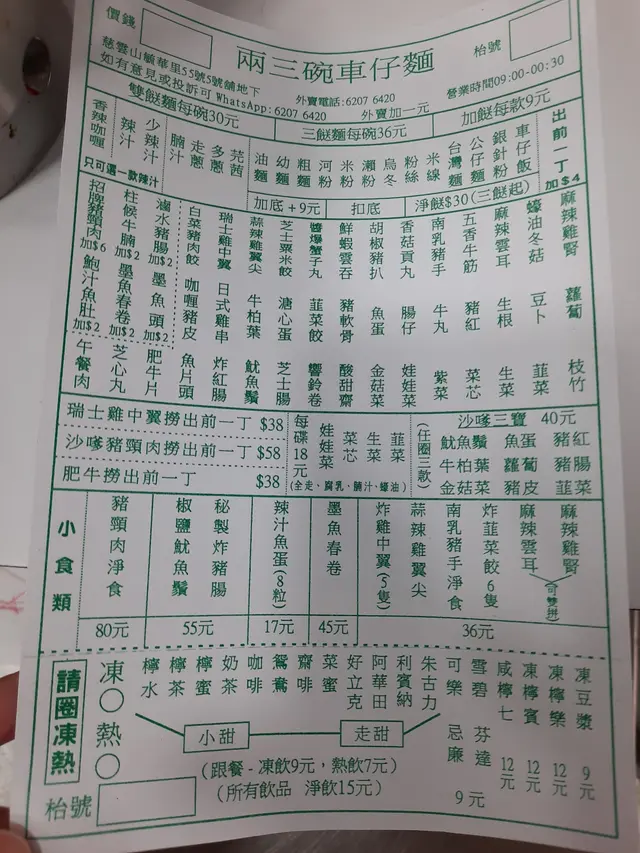 價錢
兩三碗車仔麵
枱號
慈雲山毓華里55號5號舖地下
如有意見或投訴可 WhatsApp: 6207 6420
外賣電話:6207 6420
營業時間09:00-00:30
外賣加一元
雙餸麵每碗30元
三餸麵每碗36元
加餸每款9元
香辣咖喱
辣汁
少辣汁
腩汁
走蔥
多蔥
芫茜
油麵
幼麵
粗麵
河粉
米粉
瀨粉
烏冬
粉絲
米線
台灣麵
公仔麵
銀針粉
車仔飯
出前一丁
加$4
只可選一款辣汁
加底+9元
扣底
淨餸$30(三餸起)
招牌豬頸肉 加$6
柱候牛腩 加$2
滷水豬腸 加$2
白菜豬肉餃
瑞士雞中翼
蒜辣雞翼尖
芝士粟米餃
醬爆蟹子丸
鮮蝦雲吞
胡椒豬扒
香菇貢丸
南乳豬手
五香牛筋
麻辣雲耳
蠔油冬菇
麻辣雞腎
鮑汁魚肚 加$2
墨魚春卷 加$2
墨魚頭 加$2
咖喱豬皮
日式雞串
牛柏葉
溏心蛋
韮菜餃
豬軟骨
魚蛋
腸仔
牛丸
豬紅
生根
豆卜
蘿蔔
午餐肉
芝心丸
肥牛片
魚片頭
炸紅腸
魷魚鬚
芝士腸
響鈴卷
酸甜齋
金菇菜
娃娃菜
紫菜
菜芯
生菜
韮菜
枝竹
瑞士雞中翼撈出前一丁 $38
沙嗲豬頸肉撈出前一丁 $58
肥牛撈出前一丁 $38
每碟18元
娃娃菜
菜芯
生菜
韮菜
(全走、腐乳、腩汁、蠔油)
(任圈三款)
沙嗲三寶 40元
魷魚鬚 魚蛋 豬紅
牛柏葉 蘿蔔 豬腸
金菇菜 豬皮 韮菜
小食類
豬頸肉淨食
椒鹽魷魚鬚
秘製炸豬腸
辣汁魚蛋(8粒)
墨魚春卷
炸雞中翼(5隻)
蒜辣雞翼尖
南乳豬手淨食
炸韮菜餃6隻
麻辣雲耳
麻辣雞腎
(可雙拼)
80元
55元
17元
45元
36元
請圈凍熱
凍○
熱○
檸水
檸茶
檸蜜
奶茶
咖啡
鴛鴦
齋啡
菜蜜
好立克
阿華田
利賓納
朱古力
可樂
雪碧
忌廉
芬達
9元
咸檸七 12元
凍檸賓 12元
凍檸樂 12元
凍豆漿 9元
小甜
走甜
(跟餐 - 凍飲9元，熱飲7元)
(所有飲品 淨飲15元)
枱號